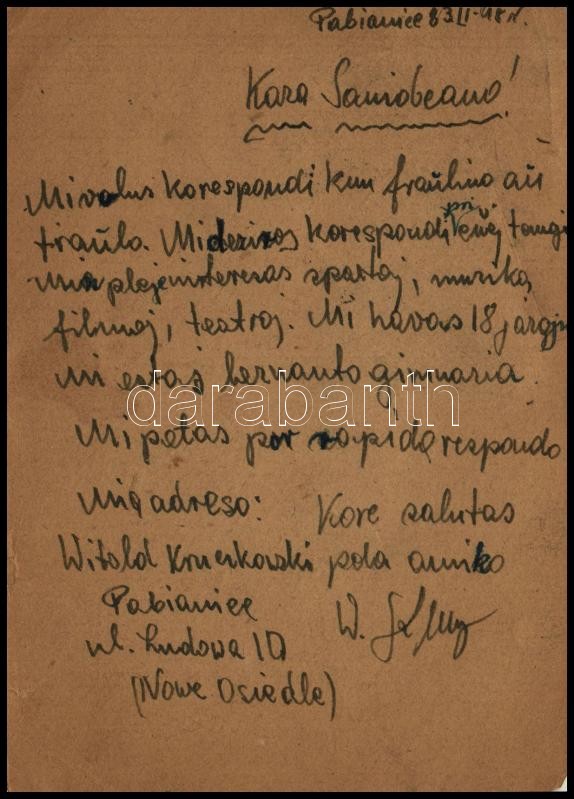 Pabianice 23 II-48 r.
Kara Samideano!
Mi volus korespondi kun fraŭlino aŭ
fraŭlo. Mi deziras korespondi pri
Min pleje interesas sportoj, muziko,
filmoj, teatroj. Mi havas 18 jarojn
Mi estas lernanto gimnazia.
Mi petas por rapida respondo
Mia adreso: Kore salutas
Witold pola amiko
Pabianice
ul. Ludowa 10
(Nowe Osiedle)
W.
darabanth